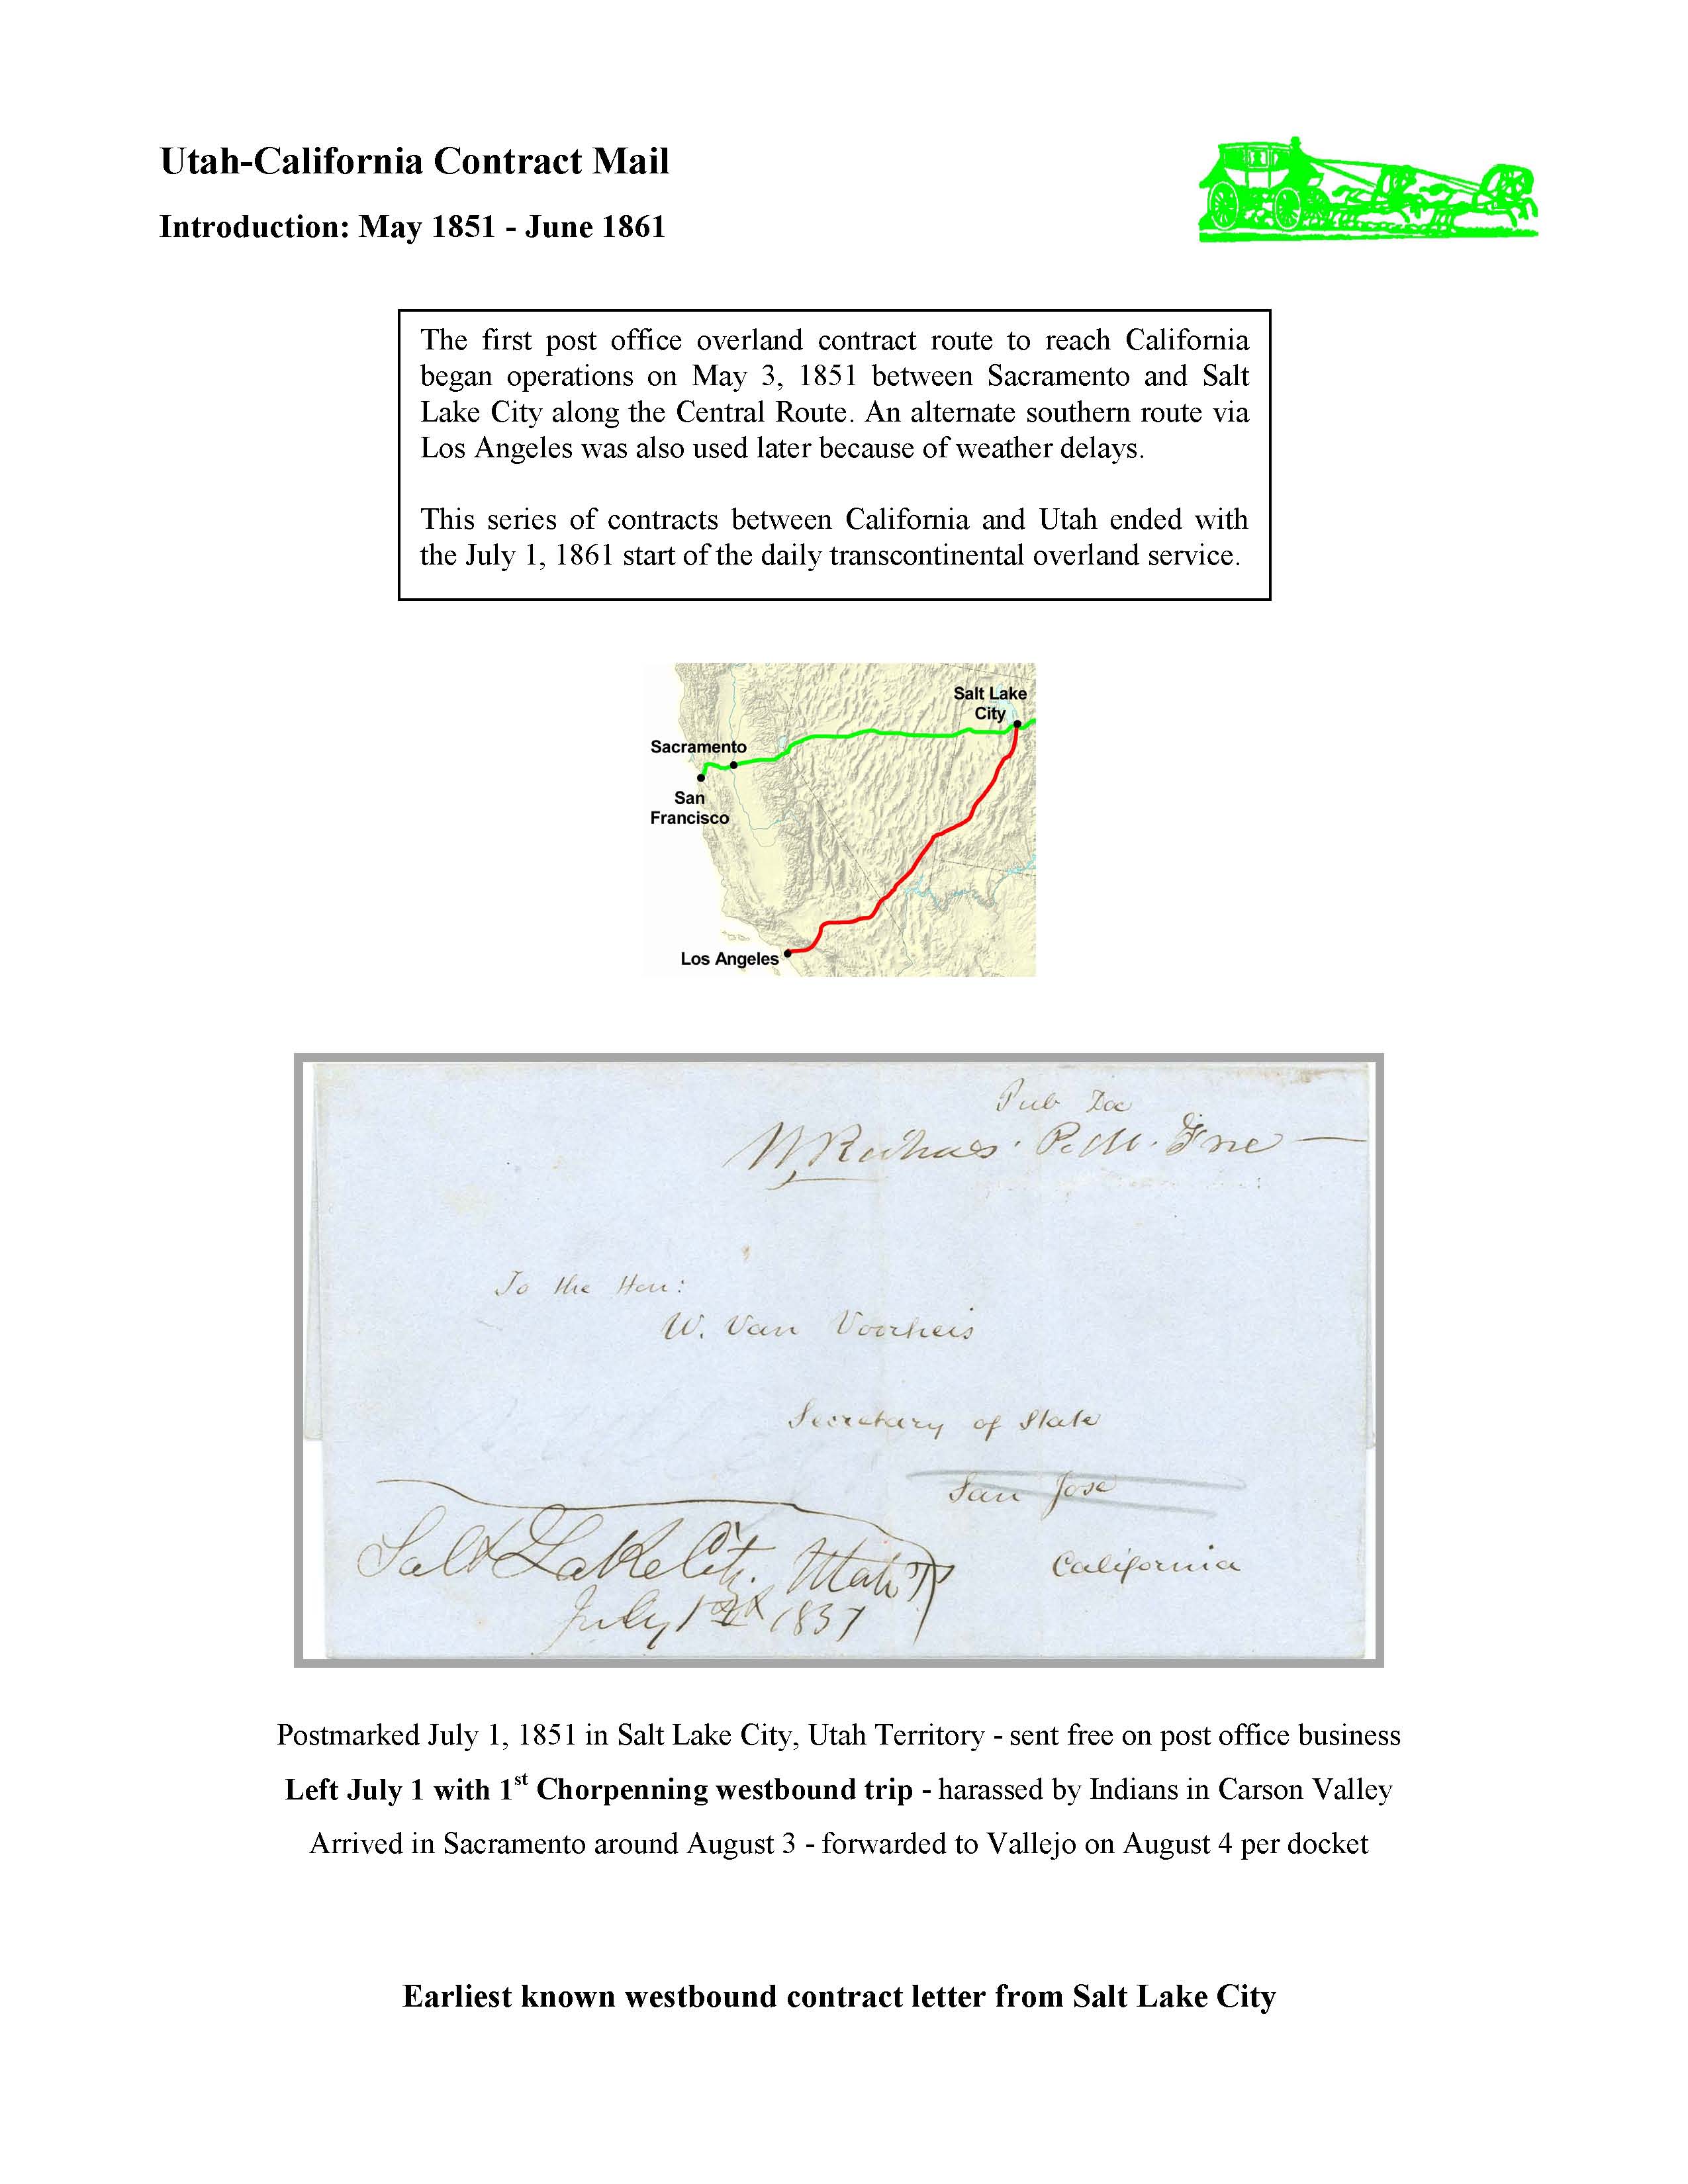 Utah-California Contract Mail
Introduction: May 1851 - June 1861
The first post office overland contract route to reach California
began operations on May 3, 1851 between Sacramento and Salt
Lake City along the Central Route. An alternate southern route via
Los Angeles was also used later because of weather delays.
This series of contracts between California and Utah ended with
the July 1, 1861 start of the daily transcontinental overland service.
Salt Lake
City
Sacramento
San
Francisco
Los Angeles
Pub Doc
P.M. Free
To the Hon:
W. Van Voorheis
Secretary of State
San Jose
California
Salt Lake City. Utah T
July 1st 1851
Postmarked July 1, 1851 in Salt Lake City, Utah Territory - sent free on post office business
Left July 1 with 1st Chorpenning westbound trip - harassed by Indians in Carson Valley
Arrived in Sacramento around August 3 - forwarded to Vallejo on August 4 per docket
Earliest known westbound contract letter from Salt Lake City